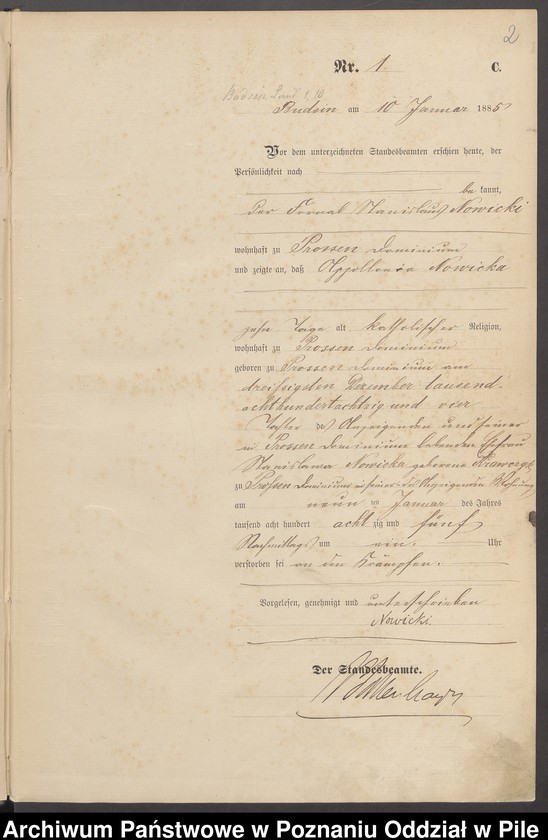 2
Nr. 1. C.
Budsin am 10 Januar 1885
Vor dem unterzeichneten Standesbeamten erschien heute, der
Persönlichkeit nach
be kannt,
der Fornal Stanislaus Nowicki
wohnhaft zu Prossen Dominium
und zeigte an, daß Appollonia Nowicka
zehn Tage alt katholischer Religion,
wohnhaft zu Prossen Dominium
geboren zu Prossen Dominium am
dreißigsten Dezember tausend
achthundertachtzig und vier
Tochter des Anzeigenden und seiner
in Prossen Dominium lebenden Ehefrau
Stanislawa Nowicka geborene
zu Prossen Dominium in seiner des Anzeigenden Wohnung
am neun ten Januar des Jahres
tausend acht hundert acht zig und fünf
Nachmittags um ein Uhr
verstorben sei an den Krämpfen.
Vorgelesen, genehmigt und unterschrieben
Nowicki.
Der Standesbeamte.
Archiwum Państwowe w Poznaniu Oddział w Pile